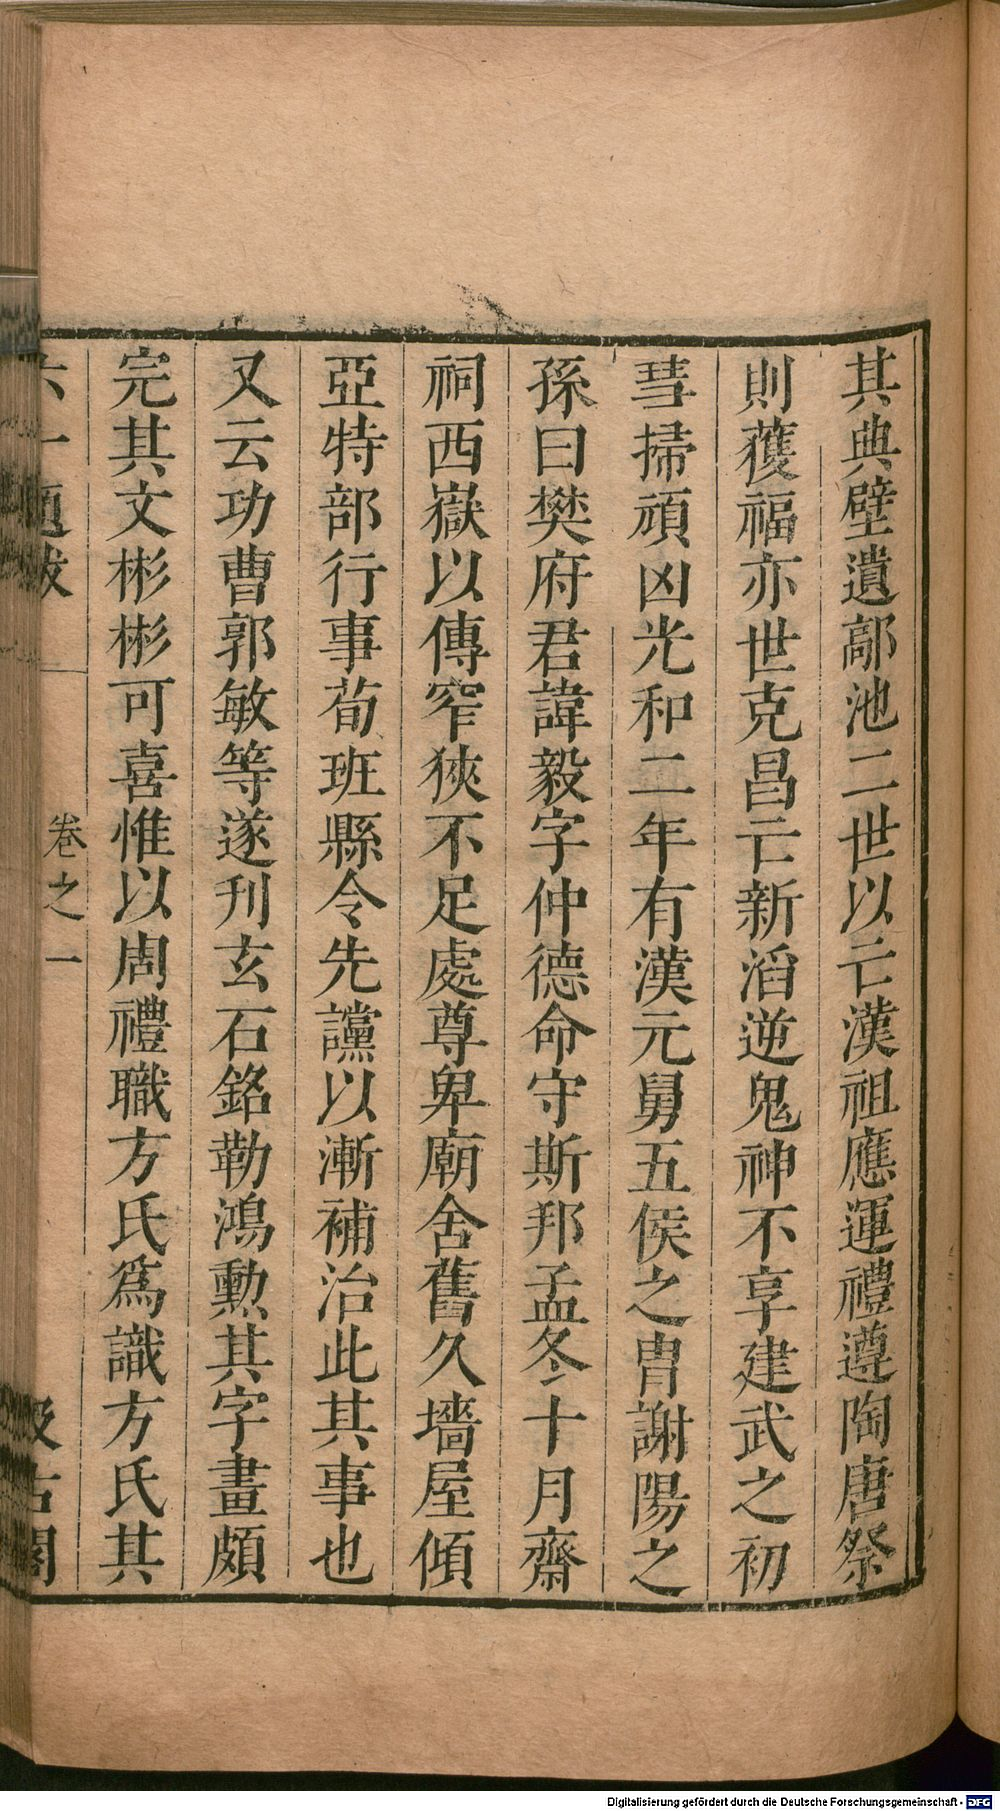 其典壁遺鄗池二世以亡漢祖應運禮遵陶唐祭
則獲福亦世克昌亡新滔逆鬼神不享建武之初
彗掃頑凶光和二年有漢元舅五侯之胄謝陽之
孫曰樊府君諱毅字仲德命守斯邦孟冬十月齋
祠西嶽以傳窄狹不足處尊卑廟舍舊久墻屋傾
亞特部行事荀班縣令先讜以漸補治此其事也
又云功曹郭敏等遂刊玄石銘勒鴻勳其字畫頗
完其文彬彬可喜惟以周禮職方氏爲識方氏其
六一題跋
卷之一
汲古閣
Digitalisierung gefördert durch die Deutsche Forschungsgemeinschaft - DFG